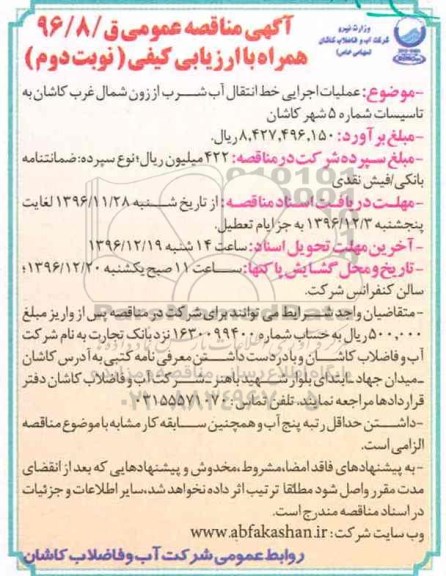 وزارت نیرو
شرکت آب و فاضلاب کاشان
(سهامی خاص)
آگهی مناقصه عمومی ق/۹۶/۸
همراه با ارزیابی کیفی (نوبت دوم)
-موضوع: عملیات اجرایی خط انتقال آب شرب از زون شمال غرب کاشان به
تاسیسات شماره ۵ شهر کاشان
-مبلغ برآورد: ۸,۴۲۷,۴۹۶,۱۵۰ ریال.
-مبلغ سپرده شرکت در مناقصه: ۴۲۲ میلیون ریال؛ نوع سپرده: ضمانتنامه
بانکی/فیش نقدی
-مهلت دریافت اسناد مناقصه: از تاریخ شنبه ۱۳۹۶/۱۱/۲۸ لغایت
پنجشنبه ۱۳۹۶/۱۲/۳ به جز ایام تعطیل.
-آخرین مهلت تحویل اسناد: ساعت ۱۴ شنبه ۱۳۹۶/۱۲/۱۹
-تاریخ و محل گشایش پاکتها: ساعت ۱۱ صبح یکشنبه ۱۳۹۶/۱۲/۲۰؛
سالن کنفرانس شرکت.
-متقاضیان واجد شرایط می توانند برای شرکت در مناقصه پس از واریز مبلغ
۵۰۰,۰۰۰ ریال به حساب شماره ۱۶۳۰۰۹۹۴۰۰ نزد بانک تجارت به نام شرکت
آب و فاضلاب کاشان و با در دست داشتن معرفی نامه کتبی به آدرس کاشان
-میدان جهاد-ابتدای بلوار شهید باهنر-شرکت آب و فاضلاب کاشان دفتر
قراردادها مراجعه نمایند. تلفن تماس: ۰۳۱۵۵۵۷۱۰۷۰
-داشتن حداقل رتبه پنج آب و همچنین سابقه کار مشابه با موضوع مناقصه
الزامی است.
-به پیشنهادهای فاقد امضا، مشروط، مخدوش و پیشنهادهایی که بعد از انقضای
مدت مقرر واصل شود مطلقا ترتیب اثر داده نخواهد شد، سایر اطلاعات و جزئیات
در اسناد مناقصه مندرج است.
وب سایت شرکت: www.abfakashan.ir
روابط عمومی شرکت آب و فاضلاب کاشان